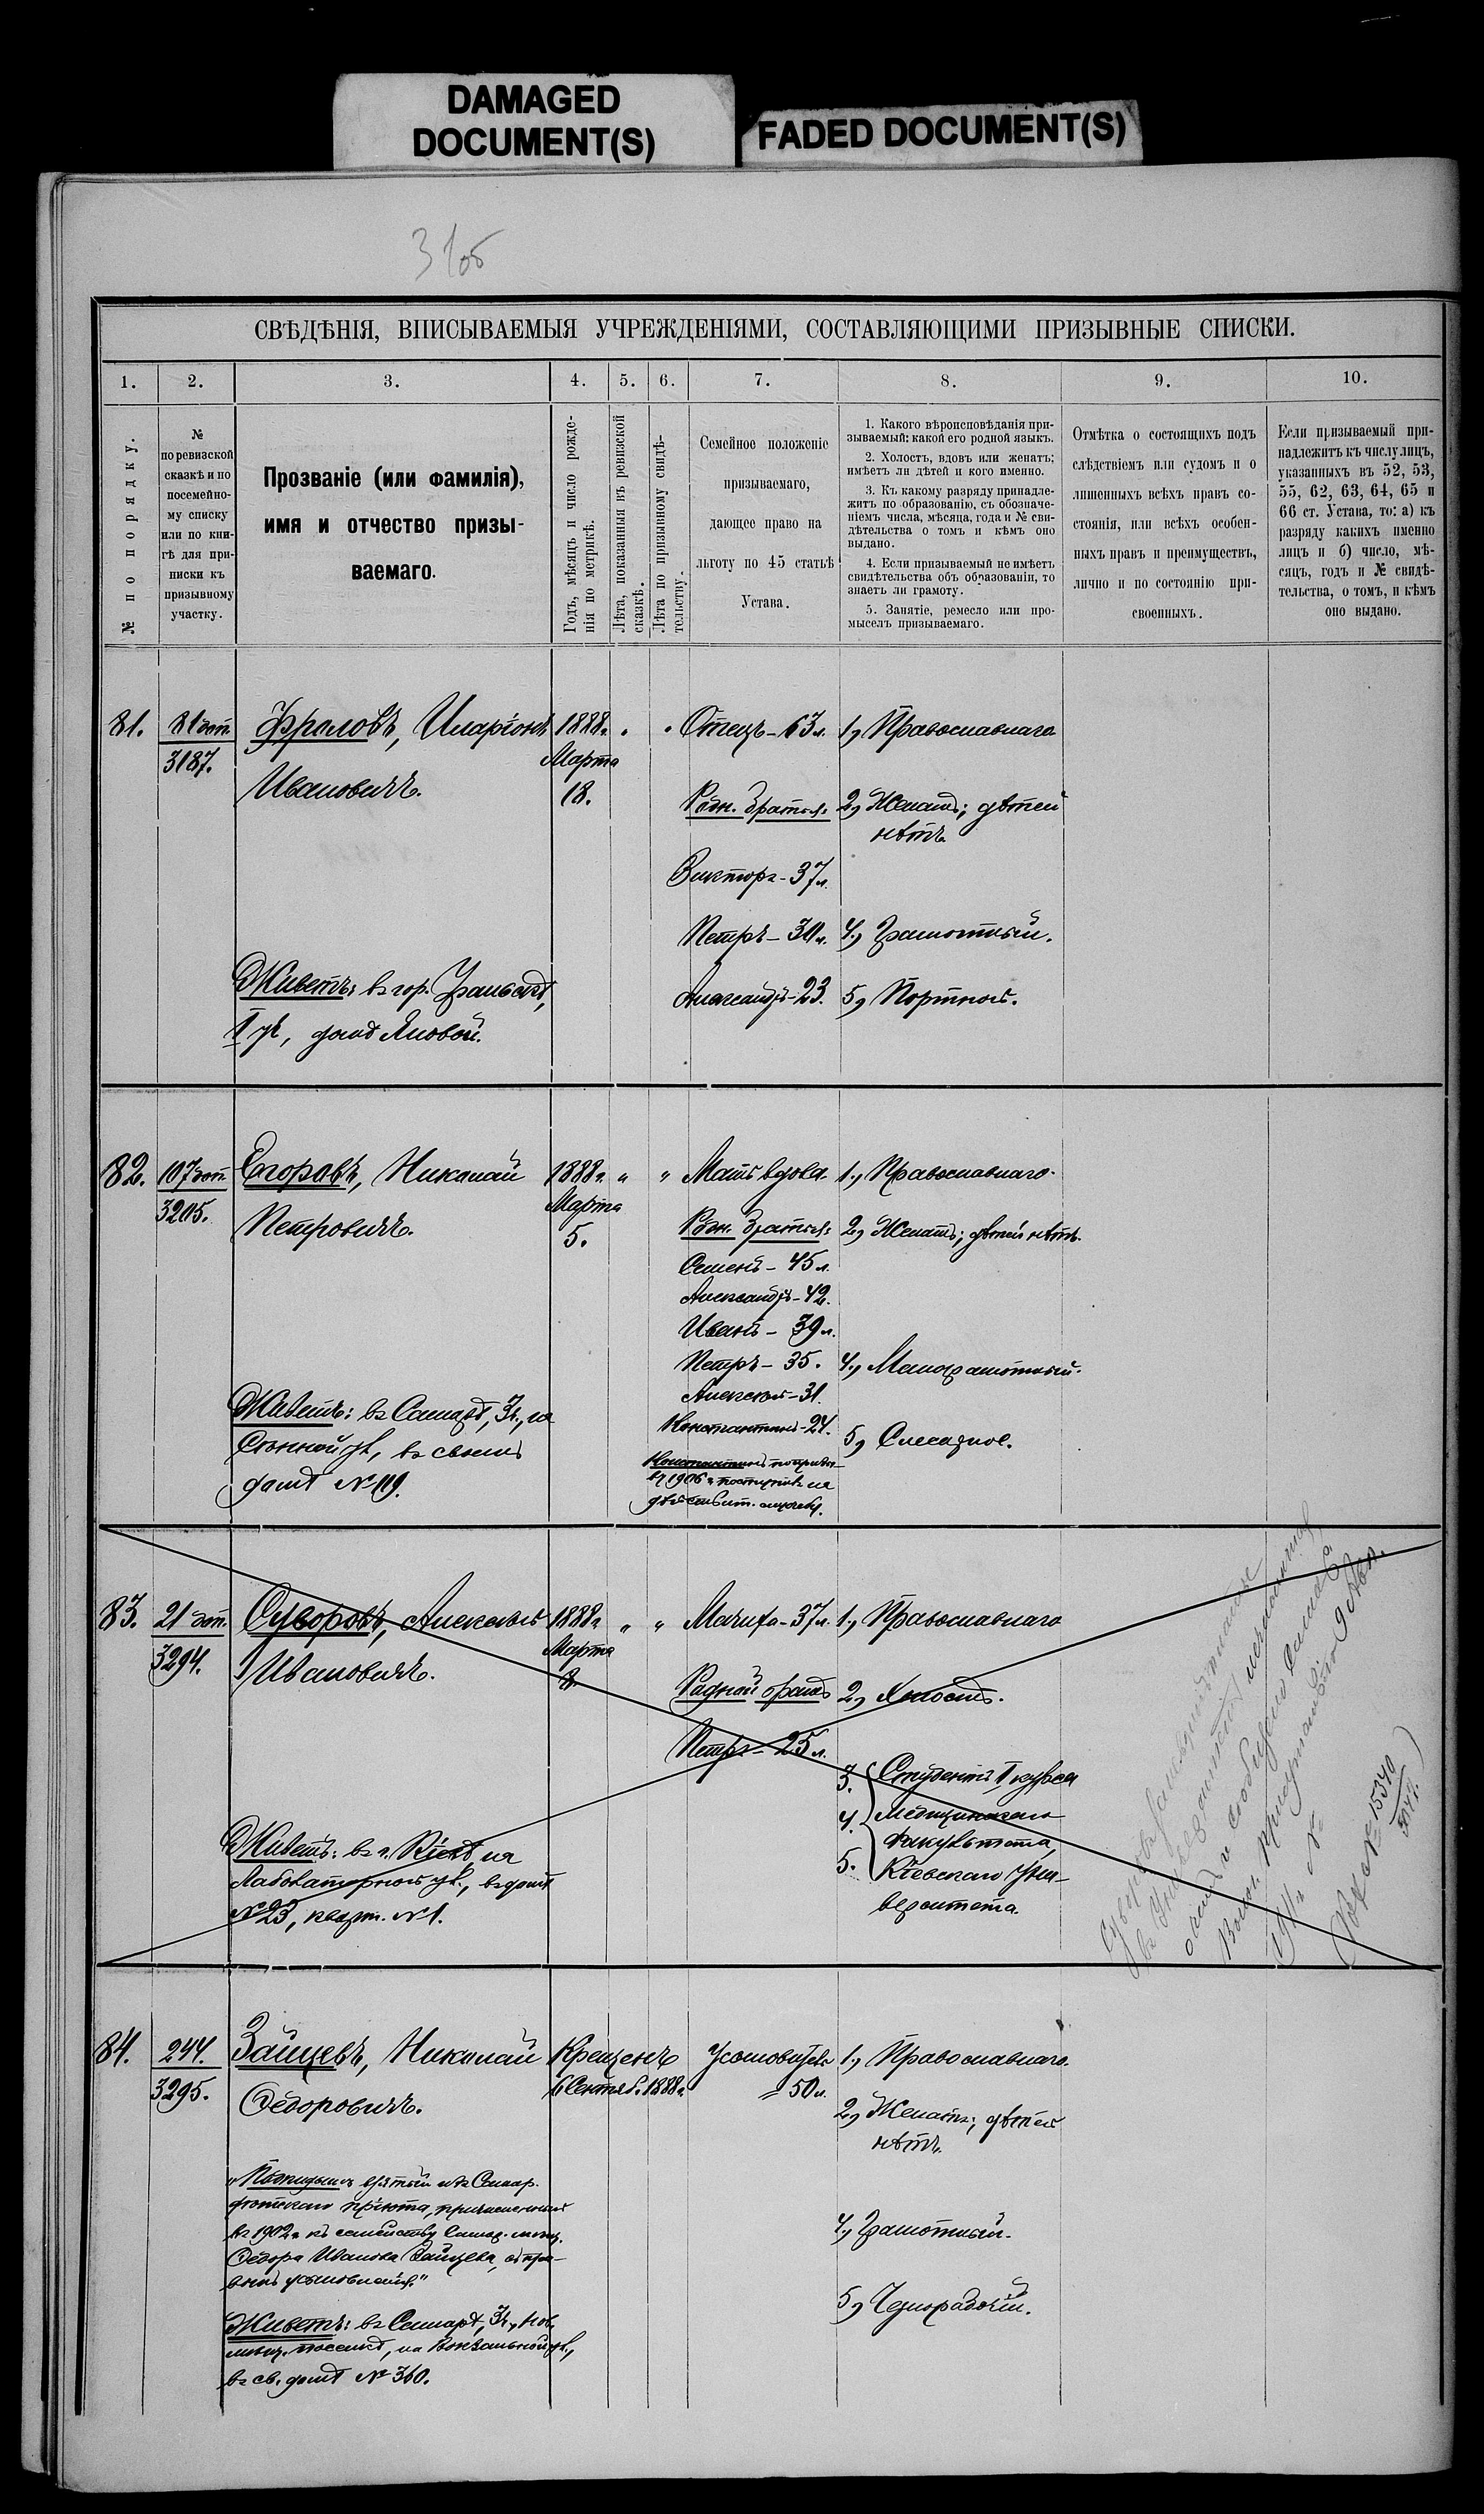 DAMAGED
DOCUMENT(S)
FADED DOCUMENT(S)
3 1об
СВѢДѢНІЯ, ВПИСЫВАЕМЫЯ УЧРЕЖДЕНІЯМИ, СОСТАВЛЯЮЩИМИ ПРИЗЫВНЫЕ СПИСКИ.
1. 2. 3. 4. 5. 6. 7. 8. 9. 10.
№ по порядку.
№
по ревизской
сказкѣ и по
посемейно-
му списку
или по кни-
гѣ для при-
писки къ
призывному
участку.
Прозваніе (или фамилія),
имя и отчество призы-
ваемаго.
Годъ, мѣсяцъ и число рожде-
нія по метрикѣ.
Лѣта, показанныя въ ревизской
сказкѣ.
Лѣта по призывному свидѣ-
тельству.
Семейное положеніе
призываемаго,
дающее право на
льготу по 45 статьѣ
Устава.
1. Какого вѣроисповѣданія при-
зываемый; какой его родной языкъ.
2. Холостъ, вдовъ или женатъ;
имѣетъ ли дѣтей и кого именно.
3. Къ какому разряду принадле-
житъ по образованію, съ обозначе-
ніемъ числа, мѣсяца, года и № сви-
дѣтельства о томъ и кѣмъ оно
выдано.
4. Если призываемый не имѣетъ
свидѣтельства объ образованіи, то
знаетъ ли грамоту.
5. Занятіе, ремесло или про-
мыселъ призываемаго.
Отмѣтка о состоящихъ подъ
слѣдствіемъ или судомъ и о
лишенныхъ всѣхъ правъ со-
стоянія, или всѣхъ особен-
ныхъ правъ и преимуществъ,
лично и по состоянію при-
своенныхъ.
Если призываемый при-
надлежитъ къ числу лицъ,
указанныхъ въ 52, 53,
55, 62, 63, 64, 65 и
66 ст. Устава, то: а) къ
разряду какихъ именно
лицъ и б) число, мѣ-
сяцъ, годъ и № свидѣ-
тельства, о томъ, и кѣмъ
оно выдано.
81.
81 доп.
3187.
Фроловъ, Иларіонъ
Ивановичъ.
Живетъ: въ гор. Уральскѣ,
I ч., домъ Яновой.
1888 г.
Марта
18.
" "
Отецъ - 63 л.
Родн. братья:
Викторъ - 37 л.
Петръ - 30 л.
Александръ - 23.
1, Православнаго
2, Женатъ; дѣтей
нѣтъ
4, Грамотный.
5, Портной.
82.
107 доп.
3205.
Егоровъ, Николай
Петровичъ.
Живетъ: въ Самарѣ, 3 ч., на
Сѣнной ул., въ своемъ
домѣ № 119.
1888 г.
Марта
5.
" "
Мать вдова.
Родн. братья:
Семенъ - 45 л.
Александръ - 42.
Иванъ - 39 л.
Петръ - 35.
Алексѣй - 31.
Константинъ - 24.
Константинъ
въ 1906 г. поступилъ на
дѣйствит. службу.
1, Православнаго.
2, Женатъ; дѣтей нѣтъ.
4, Малограмотный.
5, Слесарное.
83.
21 доп.
3294.
Суворовъ, Алексѣй
Ивановичъ.
Живетъ: въ г. Кіевѣ на
Лабораторной ул., въ домѣ
№ 23, кварт. № 1.
1888 г.
Марта
8
" "
Мачиха - 37 л.
Родной братъ
Петръ - 25 л.
1, Православнаго
2, Холостъ.
3.
4.
5.
Студентъ I курса
Медицинскаго
Факультета,
Кіевскаго Уни-
верситета.
№ 15340
84.
244.
3295.
Зайцевъ, Николай
Ѳедоровичъ.
„Подкидышъ взятый изъ Самар.
дѣтскаго пріюта, причисленный
въ 1902 г. къ семейству Самар. мѣщ.
Ѳедора Иванова Зайцева, съ пра-
вомъ усыновленія."
Живетъ: въ Самарѣ, 3 ч., Нов.
мѣщ. поселкѣ, на Вокзальной ул.,
въ св. домѣ № 360.
Крещенъ
6 Сентяб. 1888 г.
Усыновитель
- 50 л.
1, Православнаго.
2, Женатъ; дѣтей
нѣтъ.
4, Грамотный.
5, Чернорабочій.